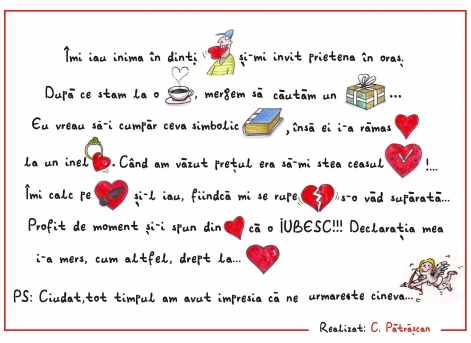 Îmi iau inima în dinți și-mi invit prietena în oraș.
După ce stam la o , mergem să căutăm un ...
Eu vreau să-i cumpăr ceva simbolic , însă ei i-a rămas
la un inel . Când am văzut prețul era să-mi stea ceasul !...
Îmi calc pe și-l iau, fiindcă mi se rupe s-o văd supărată...
Profit de moment și-i spun din că o IUBESC!!! Declarația mea
i-a mers, cum altfel, drept la...
PS: Ciudat,tot timpul am avut impresia că ne urmarește cineva...
Realizat: C. Pătrășcan